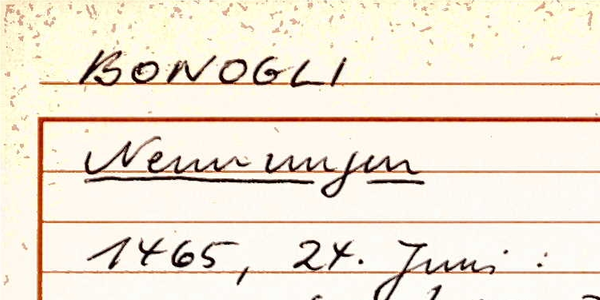 BONOGLI
Nennungen
1465, 24. Juni :